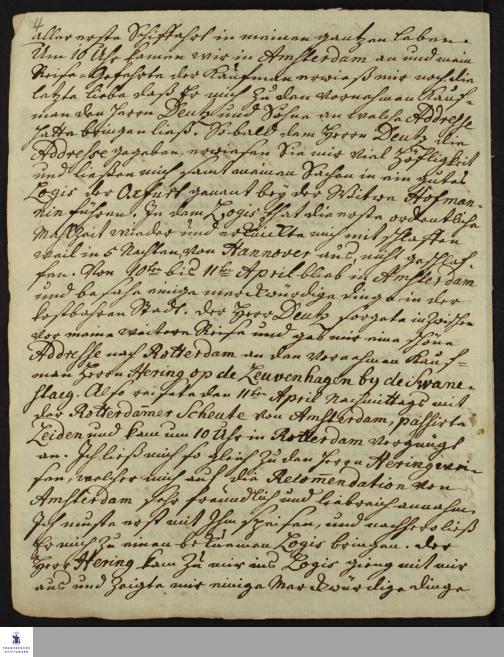 4
aller erste Schiffahrt in meinen gantzen Leben.
Um 10 Uhr kamen wir in Amsterdam an und mein
Reise-Gefehrte der Kaufman erwieß mir noch die
letzte liebe daß Er mich zu den Vornehmen Kauf-
man den Herrn Deutz und Sohne an welche Addresse
hatte bringen ließ. So bald dem Herrn Deutz die
Addresse gegeben erwiesen Sie mir viel Höfligkeit
und ließen mich samt meinen Sachen in ein gutes
Logis der Oxfurt genant bey der Witwe Hofman-
nin führen. In dem Logis that die erste ordentliche
Mahlzeit wieder und erquickte mich mit schlaffen
weil in 5 Nachten, von Hannover aus, nicht geschlaf-
fen. Von 10ten bis 11ten April blieb in Amsterdam
und besahe einige merckwürdige dinge in der
kostbahren Stadt. der Herr Deutz sorgete inzwischen
vor meine weitere Reise und gab mir eine schöne
Addresse nach Rotterdam an den Vornehmen Kauf-
man Herrn Hering op de Leuvenhagen by de Swane-
steeg. Also reisete den 11ten April Nachmittags mit
der Rotterdamer Scheute von Amsterdam, passirte
Leiden und kam um 10 Uhr in Rotterdam vergnügt
an. Ich ließ mich so gleich zu den Herrn Hering wei-
sen, welcher mich auf die Recomendation von
Amsterdam sehr freundlich und liebreich annahm,
Ich muste erst mit Ihm speisen, und nachher ließ
Er mich zu einen bequemen Logis bringen. der
Herr Hering kam zu mir ins Logis gieng mit mir
aus und zeigte mir einige Merckwürdige dinge
FRANCKESCHE
STIFTUNGEN